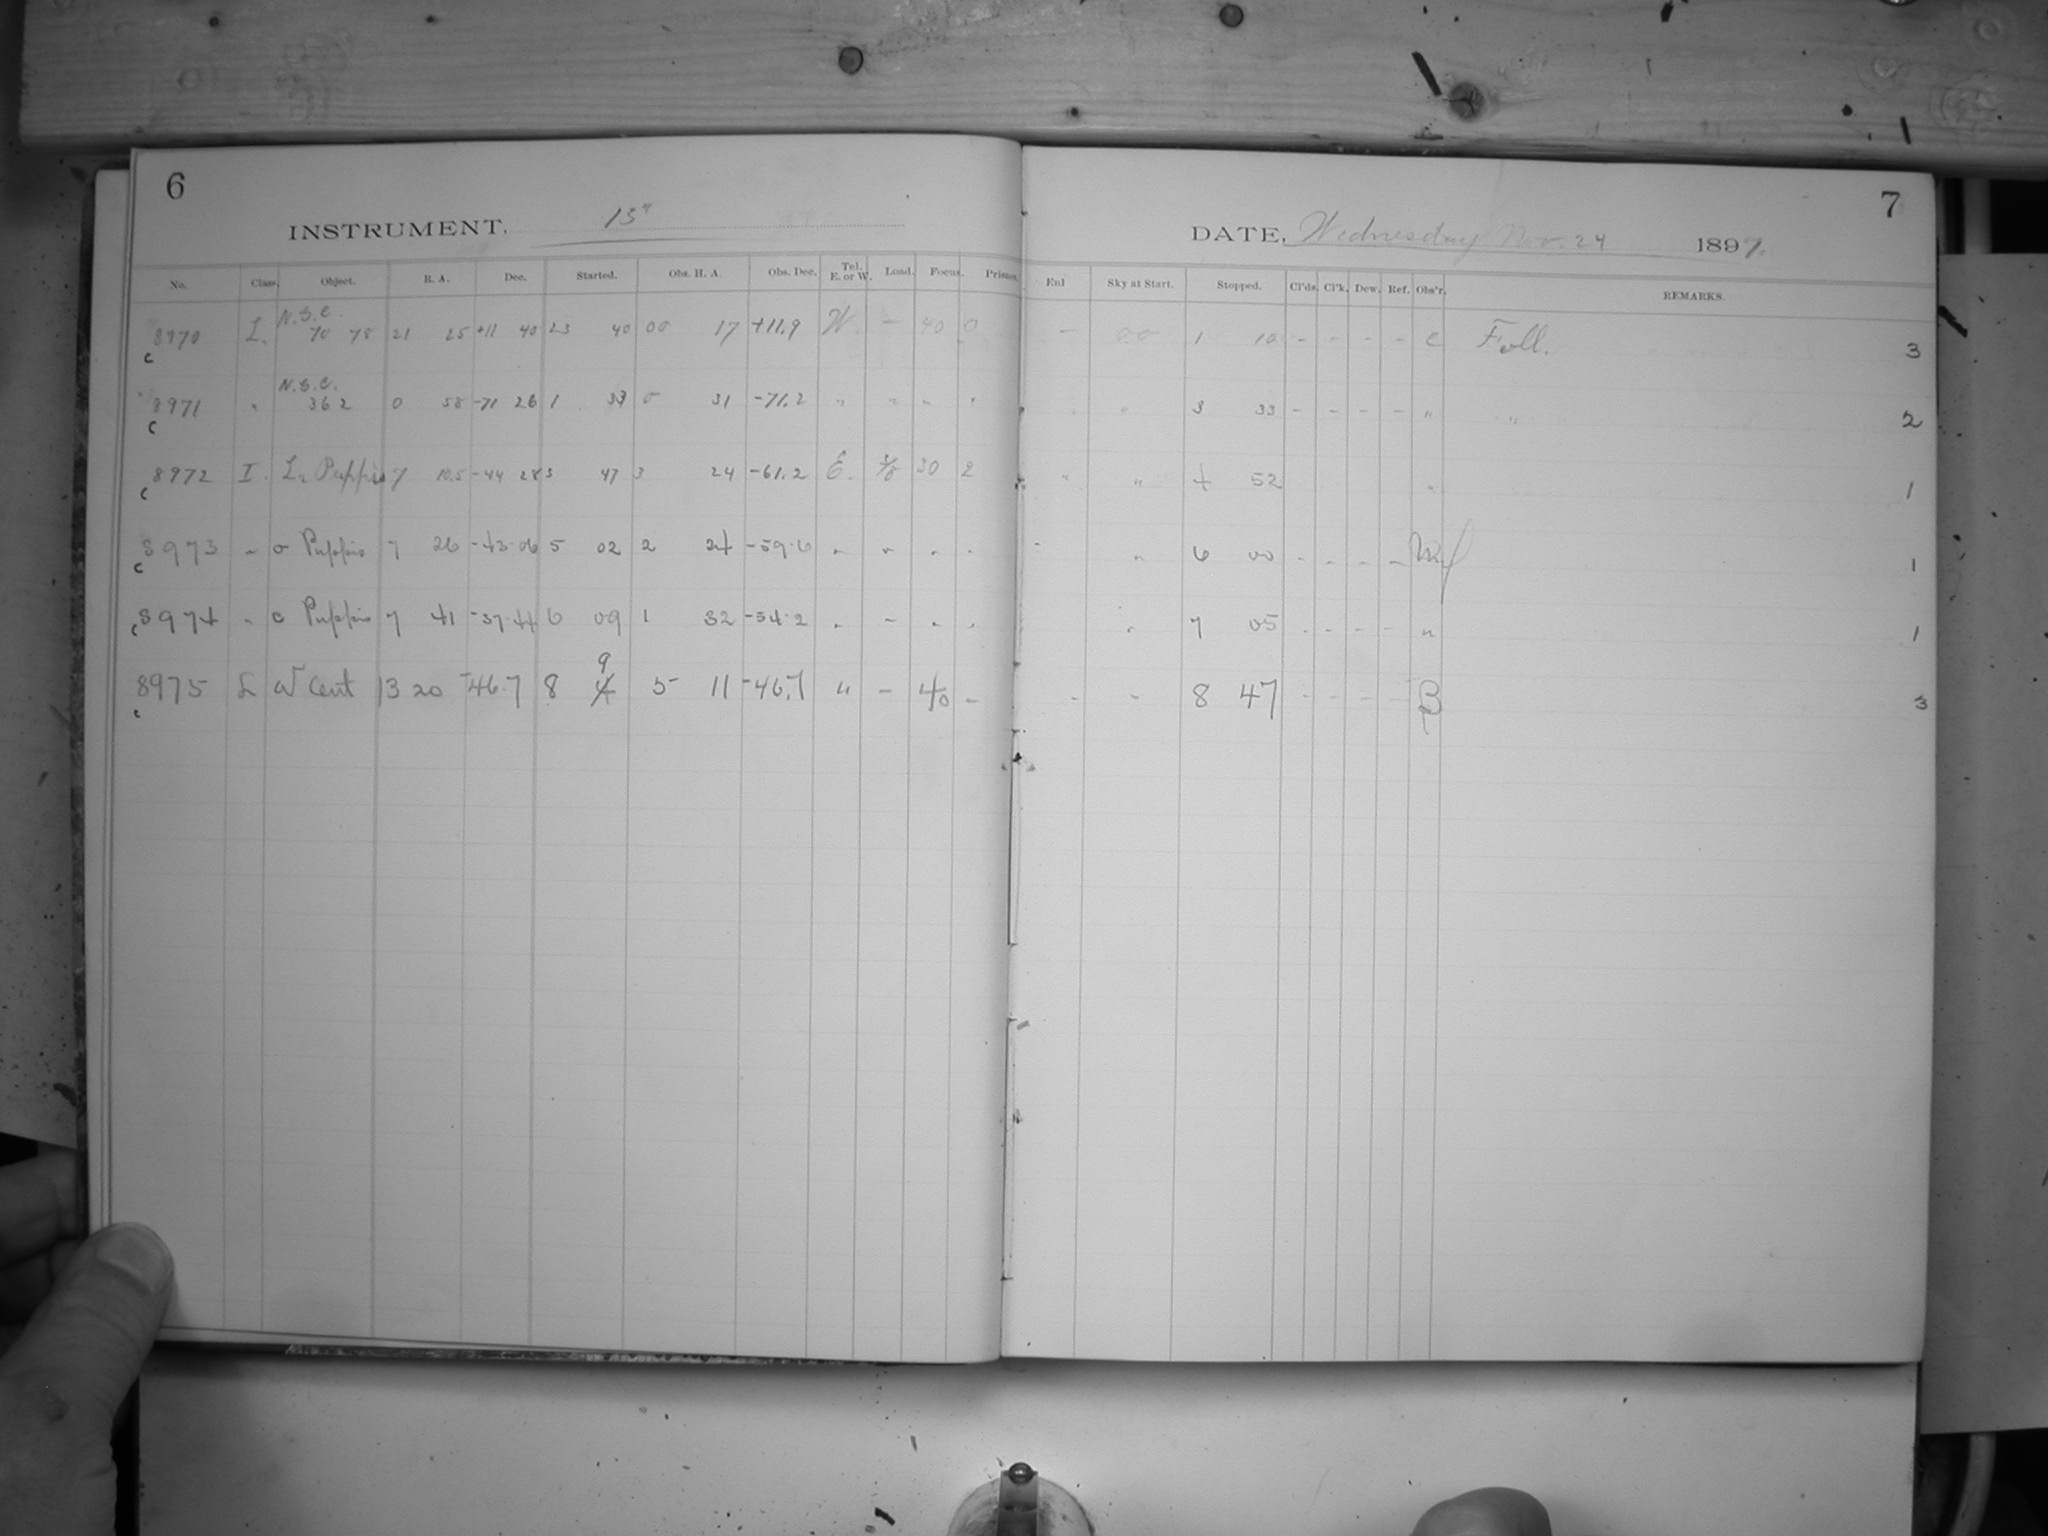 6
INSTRUMENT, 13"
No. Class. Object. R. A. Dec. Started. Obs. H. A. Obs. Dec. Tel. E. or W. Load. Focus. Prisms.
8970 L. N.G.C. 70 78 21 25 +11 40 23 40 00 17 +11.9 W. - 40 0
8971 " N.G.C. 362 0 58 -71 26 1 33 0 31 -71.2 " " " "
8972 I. L2 Puppis 7 10.5 -44 28 3 47 3 24 -61.2 E. 30 2
8973 " σ Puppis 7 26 -43.06 5 02 2 24 -59.6 " " " "
8974 " c Puppis 7 41 -37.44 6 09 1 32 -54.2 " " " "
8975 L ω Cent 13 20 -46.7 8 9 5 11 -46.7 " - 40 -
7
DATE, Wednesday Nov. 24 1897.
Enl Sky at Start. Stopped. Cl'ds. Cl'k. Dew. Ref. Obs'r. REMARKS.
- 00 1 10 - - - - C Foll. 3
" 3 33 - - - - " " 2
" " 4 52 " 1
" " 6 00 - - - - 1
" 7 05 - - - - " 1
- - 8 47 - - - - B 3